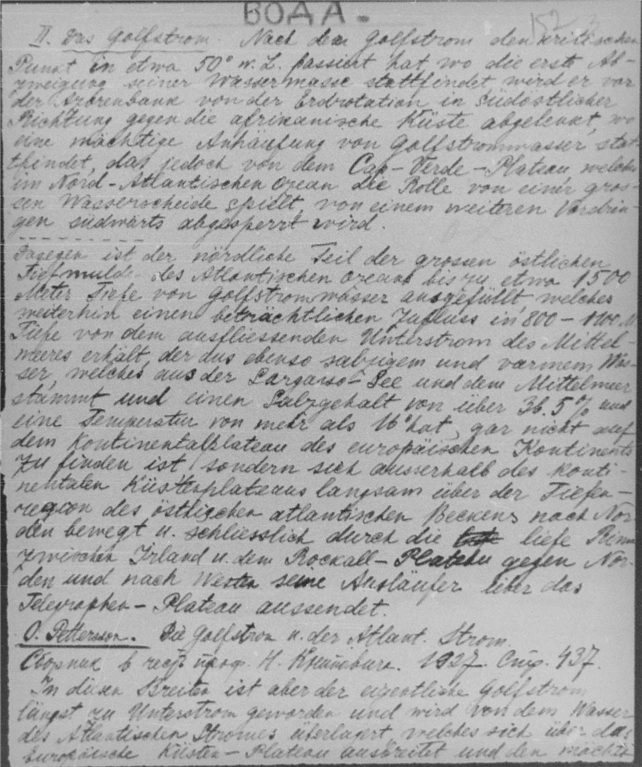 ВОДА.
152
II. Das Golfstrom. Nach dem Golfstrom den kritischen
Punkt in etwa 50° w. L. passiert hat, wo die erste Ab-
zweigung seiner Wassermasse stattfindet wird er vor
der Azorenbank von der Erdrotation in südöstlicher
Richtung gegen die afrikanische Küste abgelenkt, wo
eine mächtige Anhäufung von Golfstromwasser stat
findet, das jedoch von dem Cap-Verde-Plateau, welches
im Nord-Atlantischen Ozean die Rolle von einer gros-
sen Wasserscheide spielt, von einem weiteren Vordrin-
gen südwärts abgesperrt wird.
Dagegen ist der nördliche Teil der grossen östlichen
Tiefmulde des Atlantischen Ozeans bis zu etwa 1500
Meter Tiefe von Golfstromwasser ausgefüllt, welches
weiterhin einen beträchtlichen Zufluss in 800-
Tiefe von dem ausfliessenden Unterstrom des Mittel-
meeres erhält, der aus ebenso salzigem und warmem Was-
ser, welches aus der Sargasso-See und dem Mittelmeer
stammt und einen Salzgehalt von über 36.5 % und
eine Temperatur von mehr als 16° hat, gar nicht auf
dem Kontinentalplateau des europäischen Kontinents
zu finden ist sondern sich ausserhalb des konti-
nentalen Küstenplateaus langsam über der Tiefen-
region des östlichen atlantischen Beckens nach Nor-
den bewegt u. schliesslich durch die tiefe Rinne
zwischen Irland u. dem Rockall-Plateau gegen Nor-
den und nach Westen seine Ausläufer über das
Telegraphen-Plateau aussendet.
O. Pettersson. Die Golfstrom u. der Atlant. Strom.
Сборник в честь проф. Н. Книповича. 1927. Стр. 437.
In diesen Breiten ist aber der eigentliche Golfstrom
längst zu Unterstrom geworden und wird von dem Wasser
des Atlantischen Stromes überlagert, welches sich über das
Europäische Küsten-Plateau ausbreitet und den